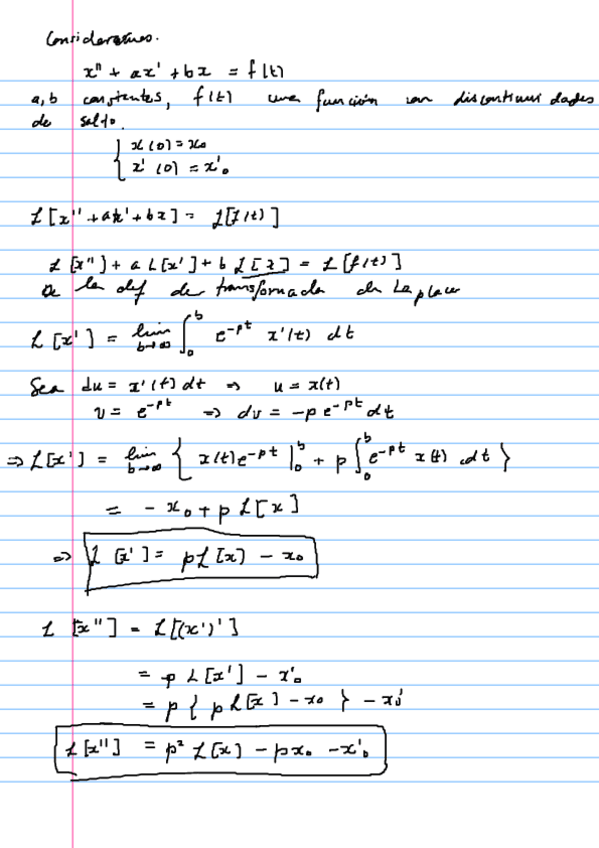 Consideremos.
x'' + ax' + bx = f(t)
a, b constantes, f(t) una función con discontinuidades
de salto.
{ x(0) = x₀
x'(0) = x'₀
ℒ[x'' + ax' + bx] = ℒ[f(t)]
ℒ[x''] + a ℒ[x'] + b ℒ[x] = ℒ[f(t)]
De la def de transformada de Laplace
ℒ[x'] = lim b→∞ ∫₀ᵇ e^{-pt} x'(t) dt
Sea du = x'(t) dt ⇒ u = x(t)
v = e^{-pt} ⇒ dv = -p e^{-pt} dt
⇒ ℒ[x'] = lim b→∞ { x(t)e^{-pt} |₀ᵇ + p ∫₀ᵇ e^{-pt} x(t) dt }
= - x₀ + p ℒ[x]
⇒ ℒ[x'] = pℒ[x] - x₀
ℒ[x''] = ℒ[(x')']
= p ℒ[x'] - x'₀
= p { p ℒ[x] - x₀ } - x₀'
ℒ[x''] = p² ℒ[x] - px₀ - x'₀